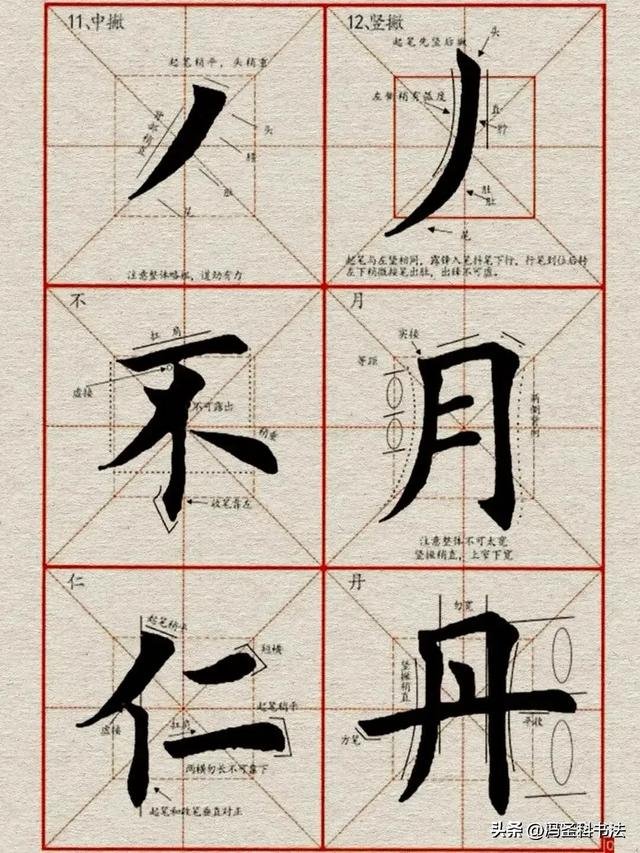 11、中撇
起笔稍平，头稍重
头
肚
尾
注意整体略短，遒劲有力
12、竖撇
起笔先竖后撇
头
左侧稍有弧度
直
肚
尾
起笔与左竖相同，露锋入笔抖笔下行，行笔到位后转
左下稍微按笔出肚，出锋不可虚。
不
扛 肩
虚接
不可露出
稍重
收笔靠左
不
月
实接
等距
两侧竖向
注意整体不可太宽
竖撇稍直，上窄下宽
月
仁
起笔稍平
短横
虚接
起笔稍平
扛肩
两横勿长不可靠下
起笔和收笔垂直对正
仁
丹
勿宽
竖撇稍直
方笔
平收
丹
头条 @冯圣科书法